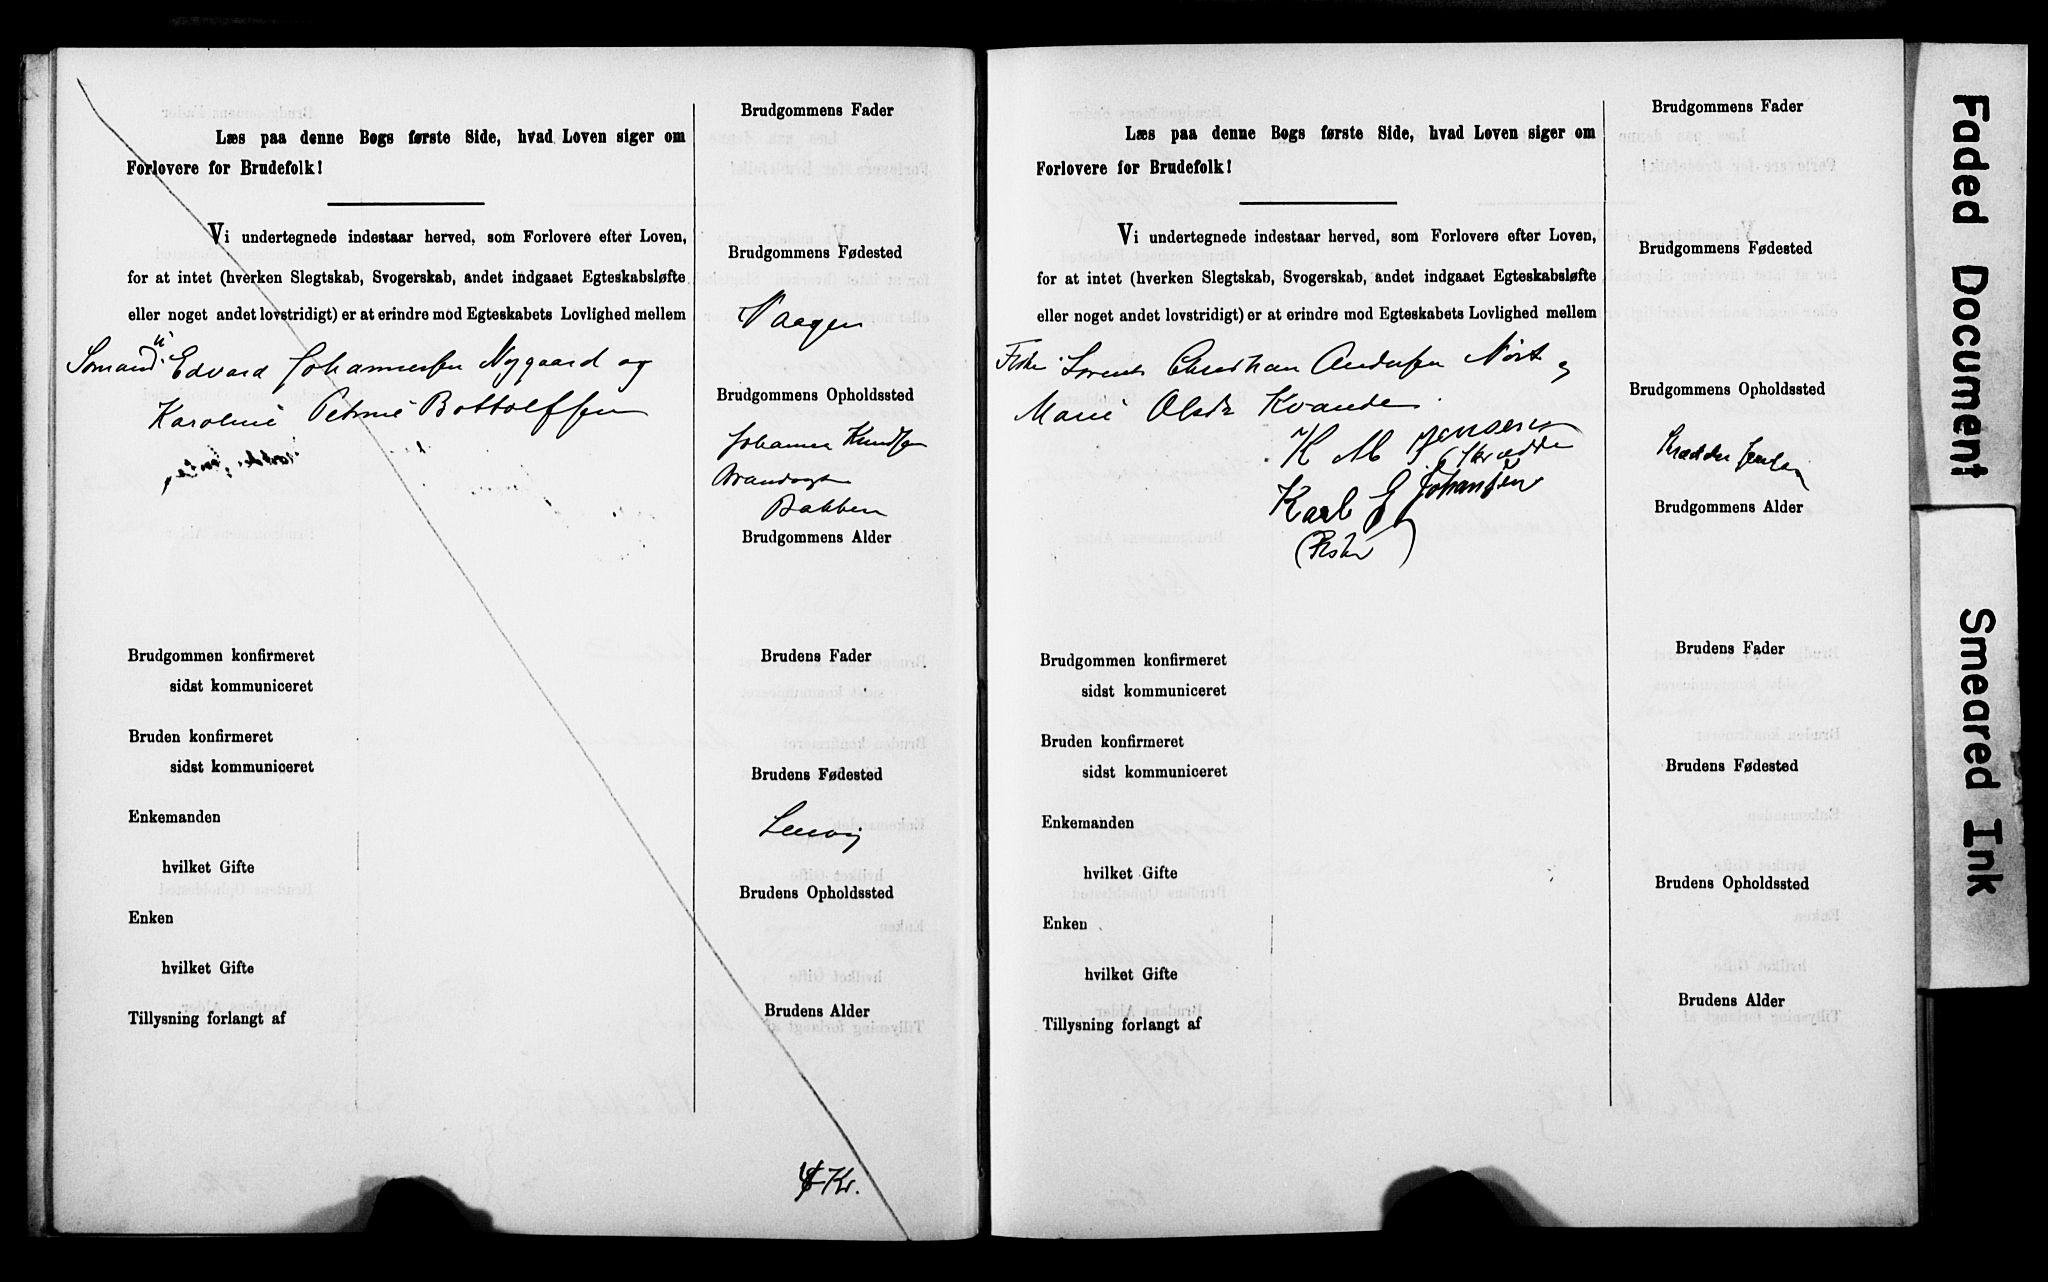 Brudgommens Fader
Læs paa denne Bogs første Side, hvad Loven siger om
Forlovere for Brudefolk!
Vi undertegnede indestaar herved, som Forlovere efter Loven,
for at intet (hverken Slegtskab, Svogerskab, andet indgaaet Egteskabsløfte
eller noget andet lovstridigt) er at erindre mod Egteskabets Lovlighed mellem
Sømand Edvard Johannessen Nygaard og
Karoline Petrine Bottolfsen
Brudgommens Fødested
Vaagen
Brudgommens Opholdssted
Johannes Knudsen
Brandvogt
Bakken
Brudgommens Alder
Brudgommen konfirmeret
sidst kommuniceret
Bruden konfirmeret
sidst kommuniceret
Enkemanden
hvilket Gifte
Enken
hvilket Gifte
Tillysning forlangt af
Brudens Fader
Brudens Fødested
Lenvig
Brudens Opholdssted
Brudens Alder
Kr.
Brudgommens Fader
Læs paa denne Bogs første Side, hvad Loven siger om
Forlovere for Brudefolk!
Vi undertegnede indestaar herved, som Forlovere efter Loven,
for at intet (hverken Slegtskab, Svogerskab, andet indgaaet Egteskabsløfte
eller noget andet lovstridigt) er at erindre mod Egteskabets Lovlighed mellem
Fisker Lorents Christian Andersen Nøst og
Marie Olsdr Kvande
K M Jensen
(Skrædder
Karl G Johansen
(Fisker)
Brudgommens Fødested
Brudgommens Opholdssted
Skrædder Jensen
Brudgommens Alder
Brudgommen konfirmeret
sidst kommuniceret
Bruden konfirmeret
sidst kommuniceret
Enkemanden
hvilket Gifte
Enken
hvilket Gifte
Tillysning forlangt af
Brudens Fader
Brudens Fødested
Brudens Opholdssted
Brudens Alder
Faded Document
Smeared Ink